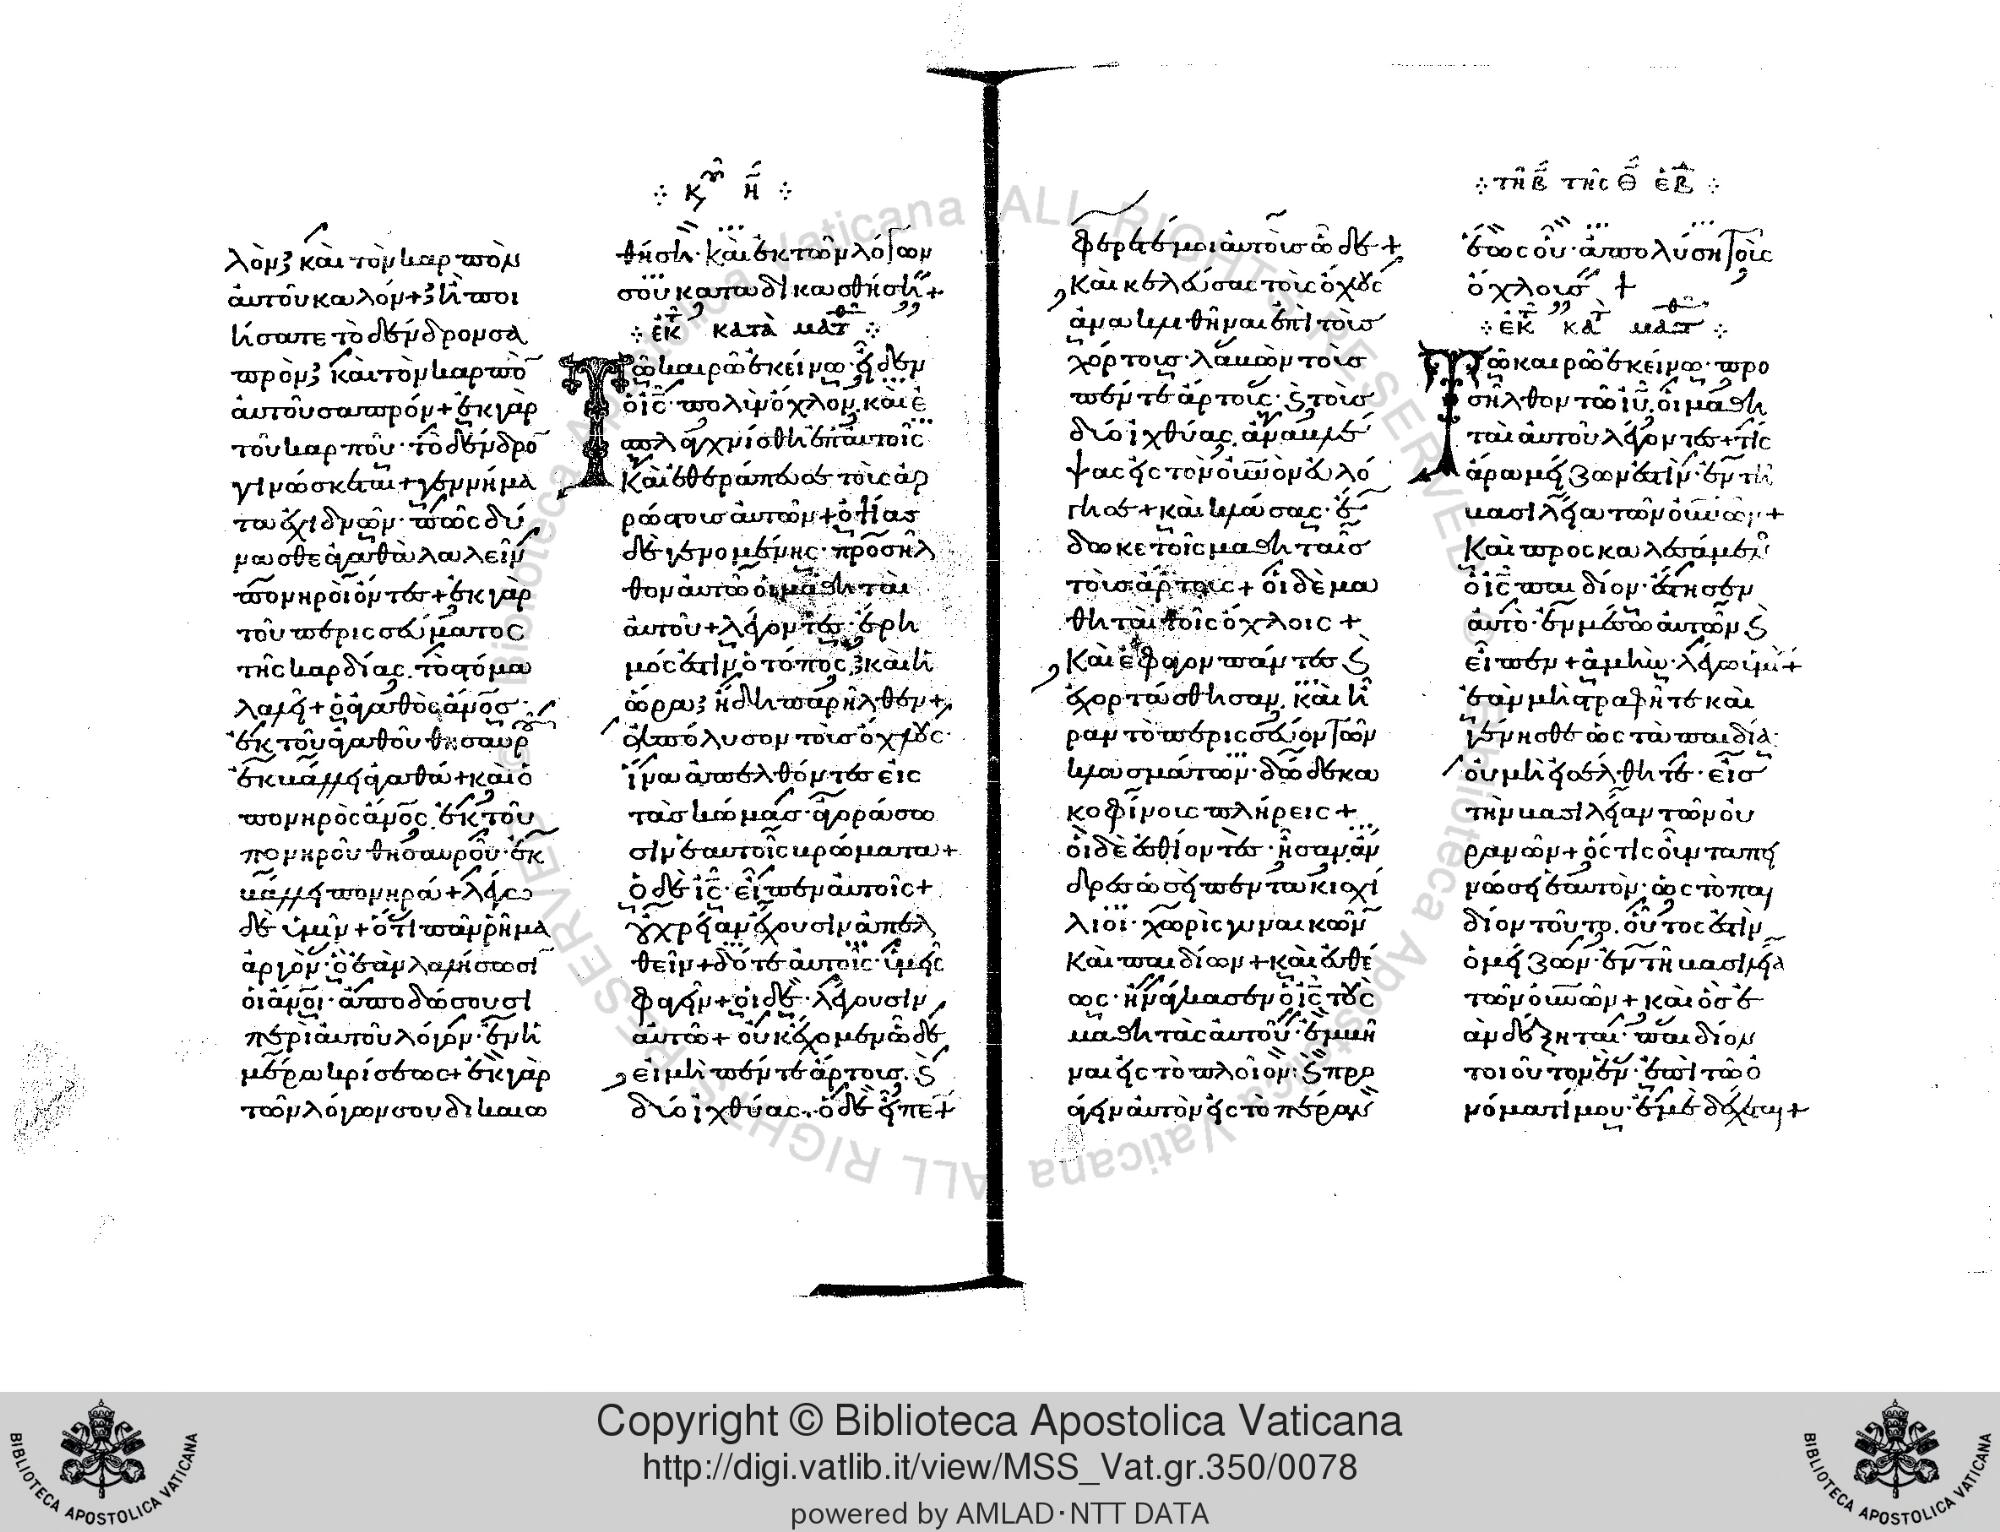 λὸν· καὶ τὸν καρπὸν
αὐτοῦ καλόν + ἢ ποι
ήσατε τὸ δένδρον σα
πρὸν· καὶ τὸν καρπὸ
αὐτοῦ σαπρόν + ἐκ γὰρ
τοῦ καρποῦ· τὸ δένδρο
γινώσκεται + γεννήμα
τα ἐχιδνῶν· πῶς δύ
νασθε ἀγαθὰ λαλεῖν
πονηροὶ ὄντες + ἐκ γὰρ
τοῦ περισσεύματος
τῆς καρδίας. τὸ στόμα
λαλεῖ + ὁ ἀγαθὸς ἄνος
ἐκ τοῦ ἀγαθοῦ θησαυρ
ἐκβάλλει ἀγαθά + καὶ ὁ
πονηρὸς ἄνος. ἐκ τοῦ
πονηροῦ θησαυροῦ· ἐκ
βάλλει πονηρά + λέγω
δὲ ὑμῖν + ὅτι πᾶν ῥῆμα
ἀργὸν· ὃ ἐὰν λαλήσωσι
οἱ ἄνοι· ἀποδώσουσι
περὶ αὐτοῦ λόγον· ἐν ἡ
μέρα κρίσεως + ἐκ γὰρ
τῶν λόγων σου δικαιω
κυ η
θήση· καὶ ἐκ τῶν λόγων
σου καταδικασθήση +
ἐκ κατὰ ματθ
Τῶ καιρῶ ἐκείνω· εἶδεν
ὁ ις· πολὺν ὄχλον. καὶ ἐ
σπλαγχνίσθη ἐπ' αὐτοῖς
Καὶ ἐθεράπευσε τοὺς ἀρ
ρώστους αὐτῶν + ὀψίας
δὲ γενομένης· προσῆλ
θον αὐτῶ οἱ μαθηταὶ
αὐτοῦ + λέγοντες· ἔρη
μός ἐστιν ὁ τόπος, καὶ ἡ
ὥρα· ἤδη παρῆλθεν +
ἀπόλυσον τοὺς ὄχλους·
ἵνα ἀπελθόντες εἰς
τὰς κώμας· ἀγοράσω
σιν ἑαυτοῖς βρώματα +
ὁ δὲ ις· εἶπεν αὐτοῖς +
οὐ χρείαν ἔχουσιν ἀπελ
θεῖν + δότε αὐτοῖς· ὑμεῖς
φαγεῖν + οἱ δὲ· λέγουσιν
αὐτῶ + οὐκ ἔχομεν ὧδε
εἰ μὴ πέντε ἄρτους. καὶ
δύο ἰχθύας.· ὁ δὲ εἶπεν +
φέρετέ μοι αὐτοὺς ὧδε +
Καὶ κελεύσας τοὺς ὄχλους
ἀνακλιθῆναι ἐπὶ τοὺς
χόρτους· λαβὼν τοὺς
πέντε ἄρτους· καὶ τοὺς
δύο ἰχθύας. ἀναβλέ
ψας εἰς τὸν οὐνὸν εὐλό
γησε + καὶ κλάσας· ἔ
δωκε τοῖς μαθηταῖς
τοὺς ἄρτους + οἱ δὲ μα
θηταὶ τοῖς ὄχλοις +
Καὶ ἔφαγον πάντες καὶ
ἐχορτάσθησαν. καὶ ἦ
ραν τὸ περισσεῦον τῶν
κλασμάτων· δώδεκα
κοφίνους πλήρεις +
οἱ δὲ ἐσθίοντες· ἦσαν ἄν
δρες ὡσεὶ πεντακισχί
λιοι· χωρὶς γυναικῶν
Καὶ παιδίων + καὶ εὐθέ
ως· ἠνάγκασεν ὁ ις τοὺς
μαθητὰς αὐτοῦ· ἐμβῆ
ναι εἰς τὸ πλοῖον· καὶ προ
άγειν αὐτὸν εἰς τὸ πέραν
τῆ β τῆς θ ἑβ
ἕως οὗ· ἀπολύση τοὺς
ὄχλους +
ἐκ κατ ματθ
Τῶ καιρῶ ἐκείνω· προ
σῆλθον τῶ ιυ. οἱ μαθη
ταὶ αὐτοῦ λέγοντες + τίς
ἄρα μείζων ἐστὶν· ἐν τῆ
βασιλεία τῶν οὐνῶν +
Καὶ προσκαλεσάμενος
ὁ ις παιδίον· ἔστησεν
αὐτὸ· ἐν μέσω αὐτῶν. καὶ
εἶπεν + ἀμὴν· λέγω ὑμῖν +
ἐὰν μὴ στραφῆτε καὶ
γένησθε ὡς τὰ παιδία·
οὐ μὴ εἰσέλθητε· εἰς
τὴν βασιλείαν τῶν οὐ
ρανῶν + ὅστις οὖν ταπει
νώσει ἑαυτὸν· ὡς τὸ παι
δίον τοῦτο. οὗτος ἐστὶν
ὁ μείζων· ἐν τῆ βασιλεία
τῶν οὐνῶν + καὶ ὃς ἐ
ὰν δέξηται· παιδίον
τοιοῦτον ἓν· ἐπὶ τῶ ὀ
νόματί μου· ἐμὲ δέχεται +
Copyright © Biblioteca Apostolica Vaticana
http://digi.vatlib.it/view/MSS_Vat.gr.350/0078
powered by AMLAD·NTT DATA
BIBLIOTECA APOSTOLICA VATICANA
BIBLIOTECA APOSTOLICA VATICANA
© Biblioteca Apostolica Vaticana ALL RIGHTS RESERVED
© Biblioteca Apostolica Vaticana ALL RIGHTS RESERVED